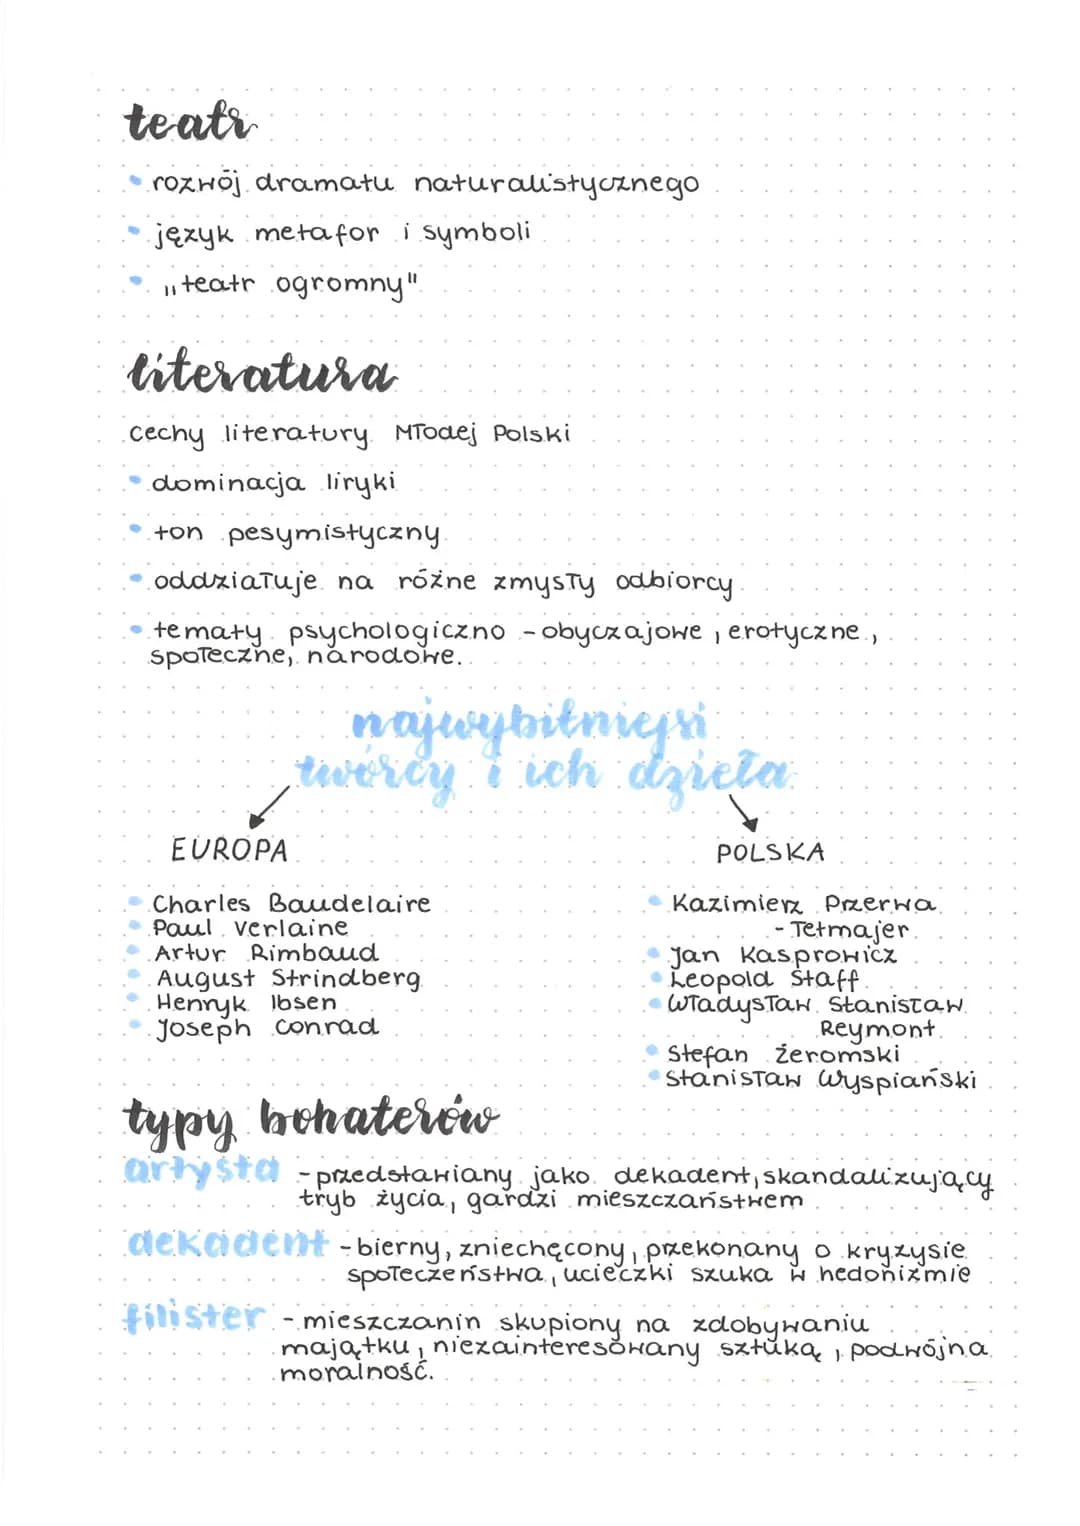 teatr
• rozwój dramatu naturalistycznego
• język metafor i symboli
• „teatr ogromny"
literatura
cechy literatury Młodej Polski
• dominacja liryki
• ton pesymistyczny
• oddziałuje na różne zmysły odbiorcy
• tematy psychologiczno - obyczajowe, erotyczne,
społeczne, narodowe.
najwybitniejsi
twórcy i ich dzieła
EUROPA
• Charles Baudelaire
• Paul Verlaine
• Artur Rimbaud
• August Strindberg
• Henryk Ibsen
• Joseph Conrad
POLSKA
• Kazimierz Przerwa
- Tetmajer
• Jan Kasprowicz
• Leopold Staff
• Władysław Stanisław
Reymont
• Stefan Żeromski
• Stanisław Wyspiański
typy bohaterów
artysta - przedstawiany jako dekadent, skandalizujący
tryb życia, gardzi mieszczaństwem
dekadent - bierny, zniechęcony, przekonany o kryzysie
społeczeństwa, ucieczki szuka w hedonizmie
filister - mieszczanin skupiony na zdobywaniu
majątku, niezainteresowany sztuką, podwójna
moralność.